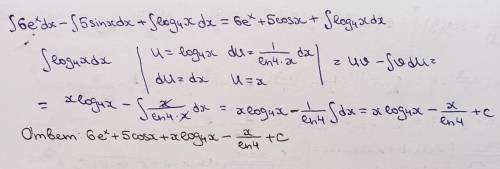 ∫6eˣdx - ∫5sinxdx + ∫log₄x dx = 6eˣ + 5cosx + ∫log₄x dx
∫log₄x dx | u = log₄x du = 1/(ln4·x) dx | = uv - ∫v du =
du = dx u = x
= xlog₄x - ∫x/(ln4·x) dx = xlog₄x - 1/ln4 ∫dx = xlog₄x - x/ln4 + c
Ответ: 6eˣ + 5cosx + xlog₄x - x/ln4 + c